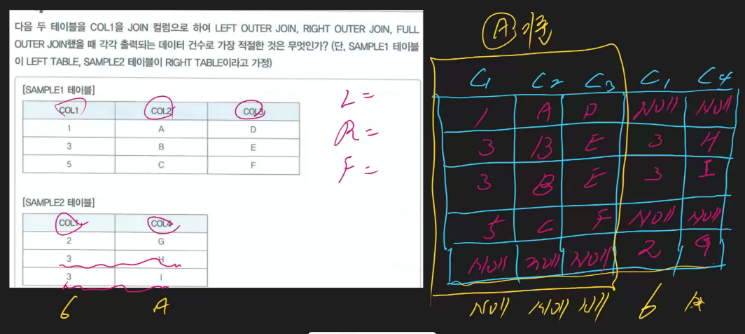 다음 두 테이블을 COL1을 JOIN 컬럼으로 하여 LEFT OUTER JOIN, RIGHT OUTER JOIN, FULL
OUTER JOIN했을 때 각각 출력되는 데이터 건수로 가장 적절한 것은 무엇인가? (단, SAMPLE1 테이블
이 LEFT TABLE, SAMPLE2 테이블이 RIGHT TABLE이라고 가정)
[SAMPLE1 테이블]
COL1 COL2 COL3
1 A D
3 B E
5 C F
[SAMPLE2 테이블]
COL1 COL4
2 G
3 H
3 I
6 A
L=
R=
F=
A
C1 C2 C3 C1 C4
1 A D Null Null
3 B E 3 H
3 B E 3 I
5 C F Null Null
Null null Null 2 G
Null Null Null 6